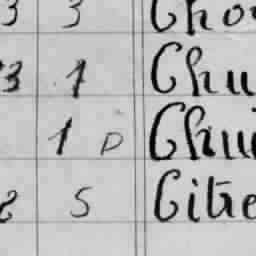 3 3 Cho
3 1 Chu
1 D Chu
2 5 Citre